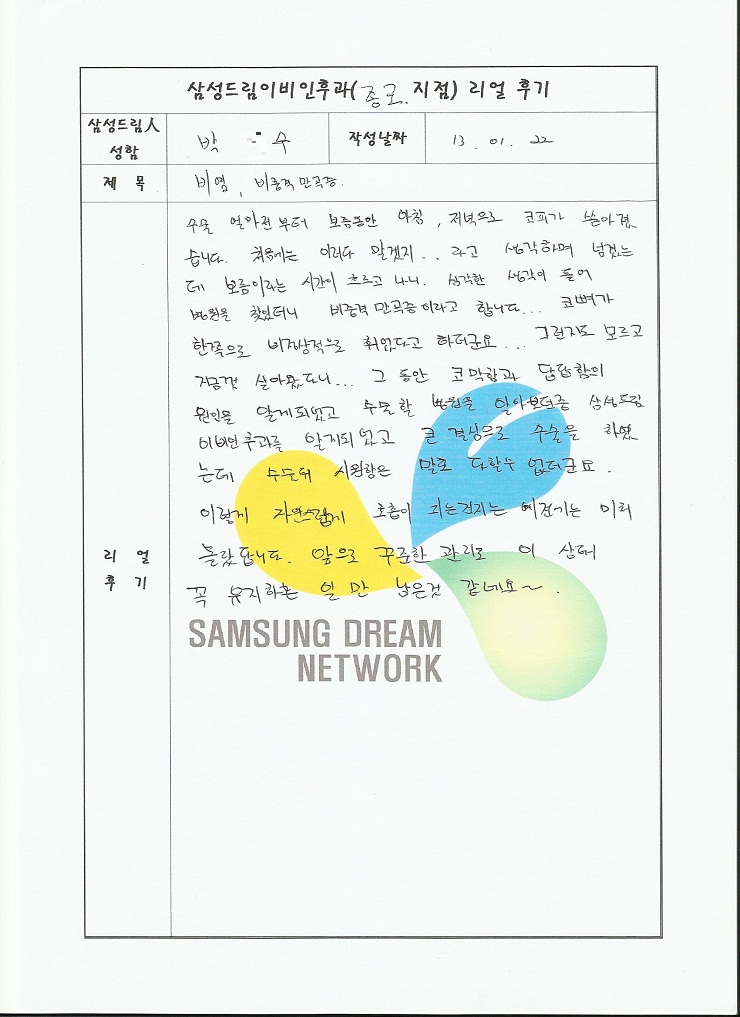 삼성드림이비인후과(종로 지점) 리얼 후기
삼성드림人 성함
박 수
작성날짜
13. 01. 22
제 목
비염, 비중격만곡증.
리 얼 후 기
수술 얼마전부터 보름동안 아침, 저녁으로 코피가 쏟아졌
습니다. 처음에는 이러다 말겠지.. 라고 생각하며 넘겼는
데 보름이라는 시간이 흐르고 나니. 심각한 생각이 들어
병원을 찾았더니 비중격 만곡증이라고 합니다... 코뼈가
한쪽으로 비정상적으로 휘었다고 하더군요... 그런지도 모르고
지금껏 살아왔다니... 그 동안 코막힘과 답답함의
원인을 알게되었고 수술할 병원을 알아보던중 삼성드림
이비인후과를 알게되었고 큰 결심으로 수술을 하였
는데 수술뒤 시원함은 말로 다할수 없더군요.
이렇게 자연스럽게 호흡이 되는건지는 예전기는 미처
몰랐답니다. 앞으로 꾸준한 관리로 이 상태
꼭 유지하는 일만 남은것 같네요~.
SAMSUNG DREAM
NETWORK